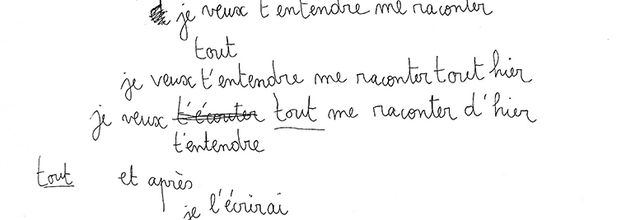 je veux t'entendre me raconter
tout
je veux t'entendre me raconter tout hier
je veux t'écouter tout me raconter d'hier
t'entendre
tout et après
je l'écrirai